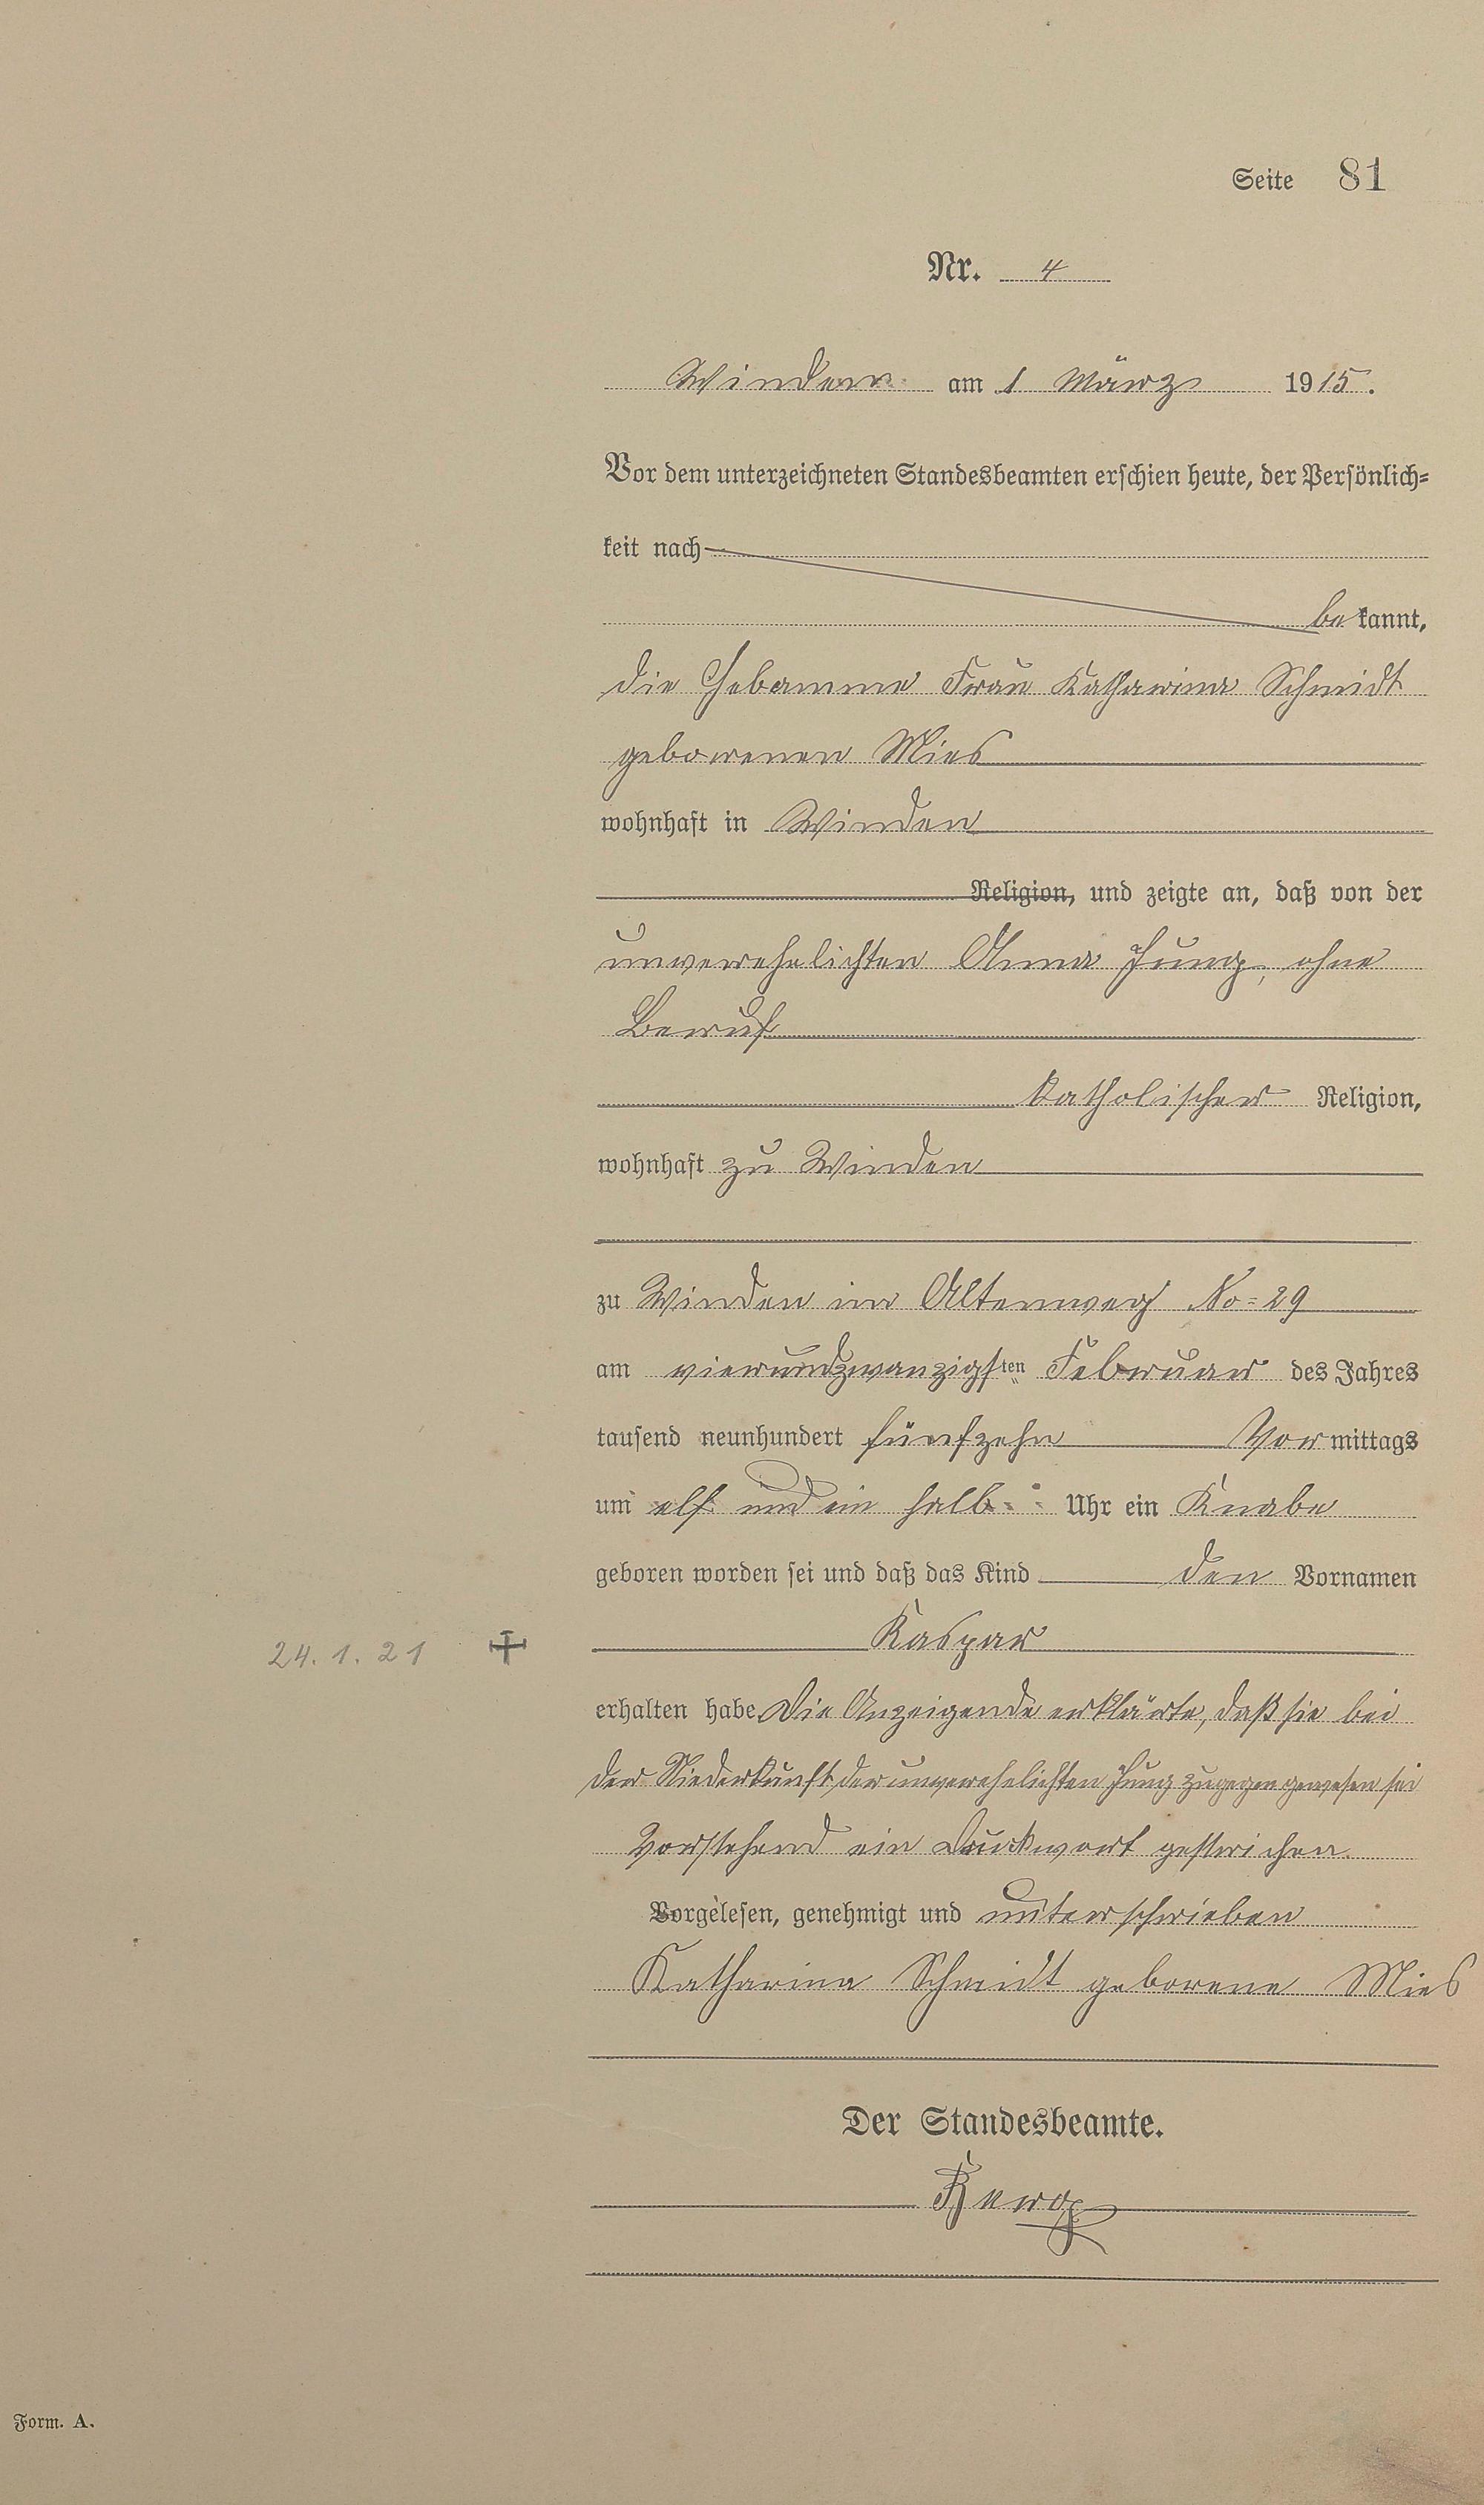 Seite 81
Nr. 4
Winden am 1 März 1915.
Vor dem unterzeichneten Standesbeamten erschien heute, der Persönlich=
keit nach
bekannt,
die Hebamme Frau Katharina Schmidt
geborenen Mies
wohnhaft in Winden
Religion, und zeigte an, daß von der
unverehelichten Anna Jung, ohne
Beruf
katholischer Religion,
wohnhaft zu Winden
zu Winden im Altenweg No=29
am vierundzwanzigsten Februar des Jahres
tausend neunhundert fünfzehn Vormittags
um elf und ein halb Uhr ein Knabe
geboren worden sei und daß das Kind den Vornamen
Kaspar
24.1.21 +
erhalten habe. Die Anzeigende erklärte, daß sie bei
der Niederkunft der unverehelichten Jung zugegen gewesen sei
Vorstehend ein Druckwort gestrichen.
Vorgelesen, genehmigt und unterschrieben
Katharina Schmidt geborene Mies
Der Standesbeamte.
Form. A.